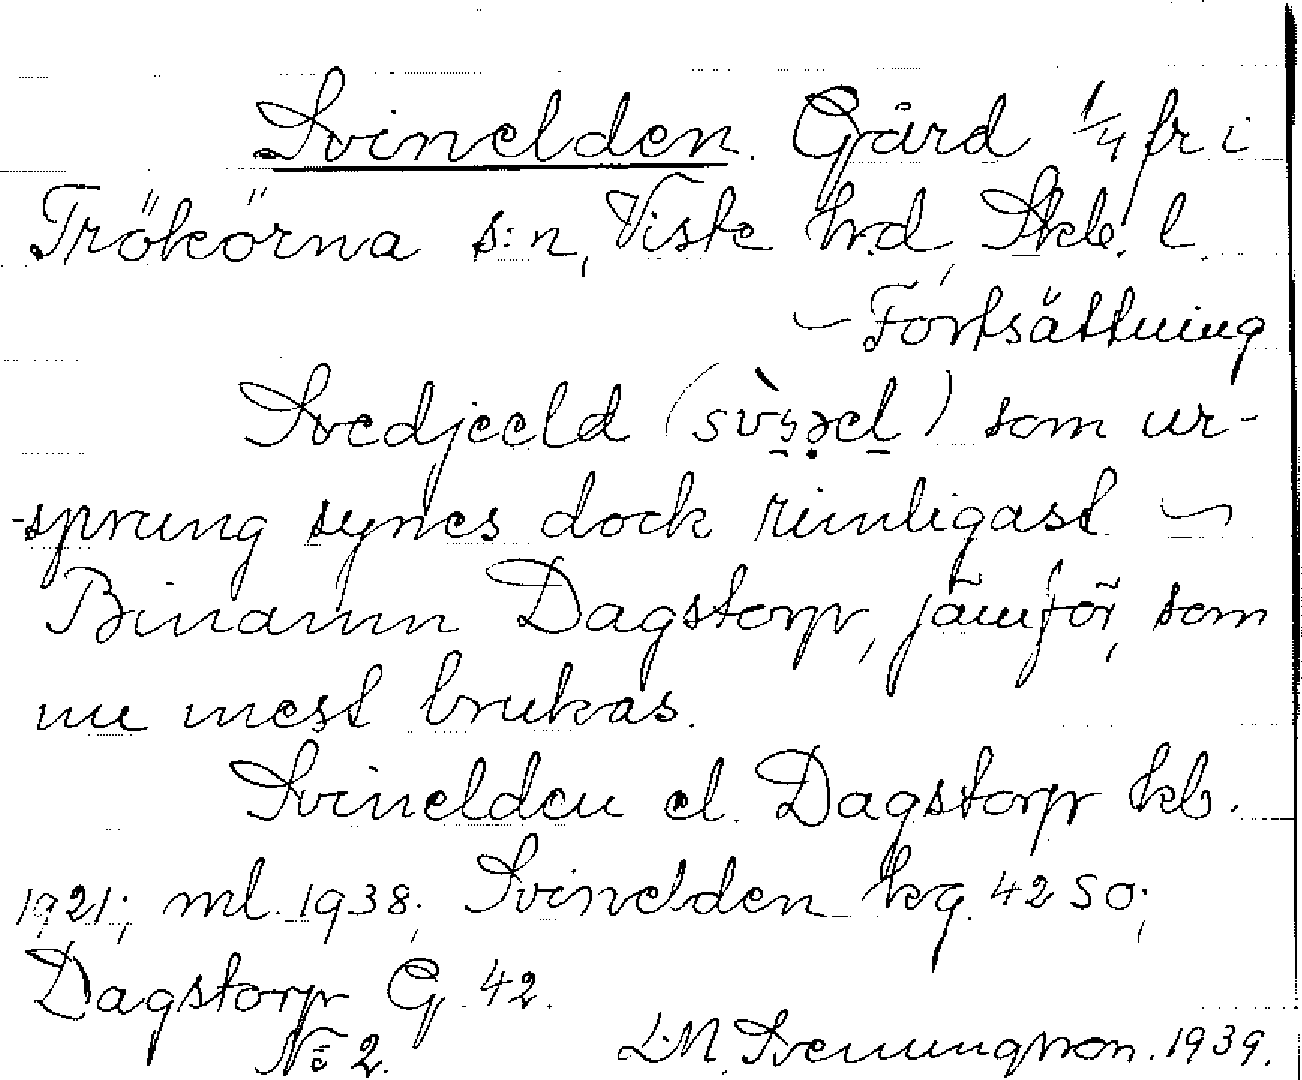 Svinelden. Gård 1/4 fr i
Trökörna s:n, Viste hrd, Skb. l.
– Fortsättning
Svedjeeld ( ) som ur-
-sprung synes dock rimligast –
Binamn Dagstorp, jämför, som
nu mest brukas.
Svinelden el. Dagstorp kb.
1921; ml. 1938; Svinelden kg. 42 SO;
Dagstorp G. 42.
No 2.
L.M. Svenungsson. 1939.